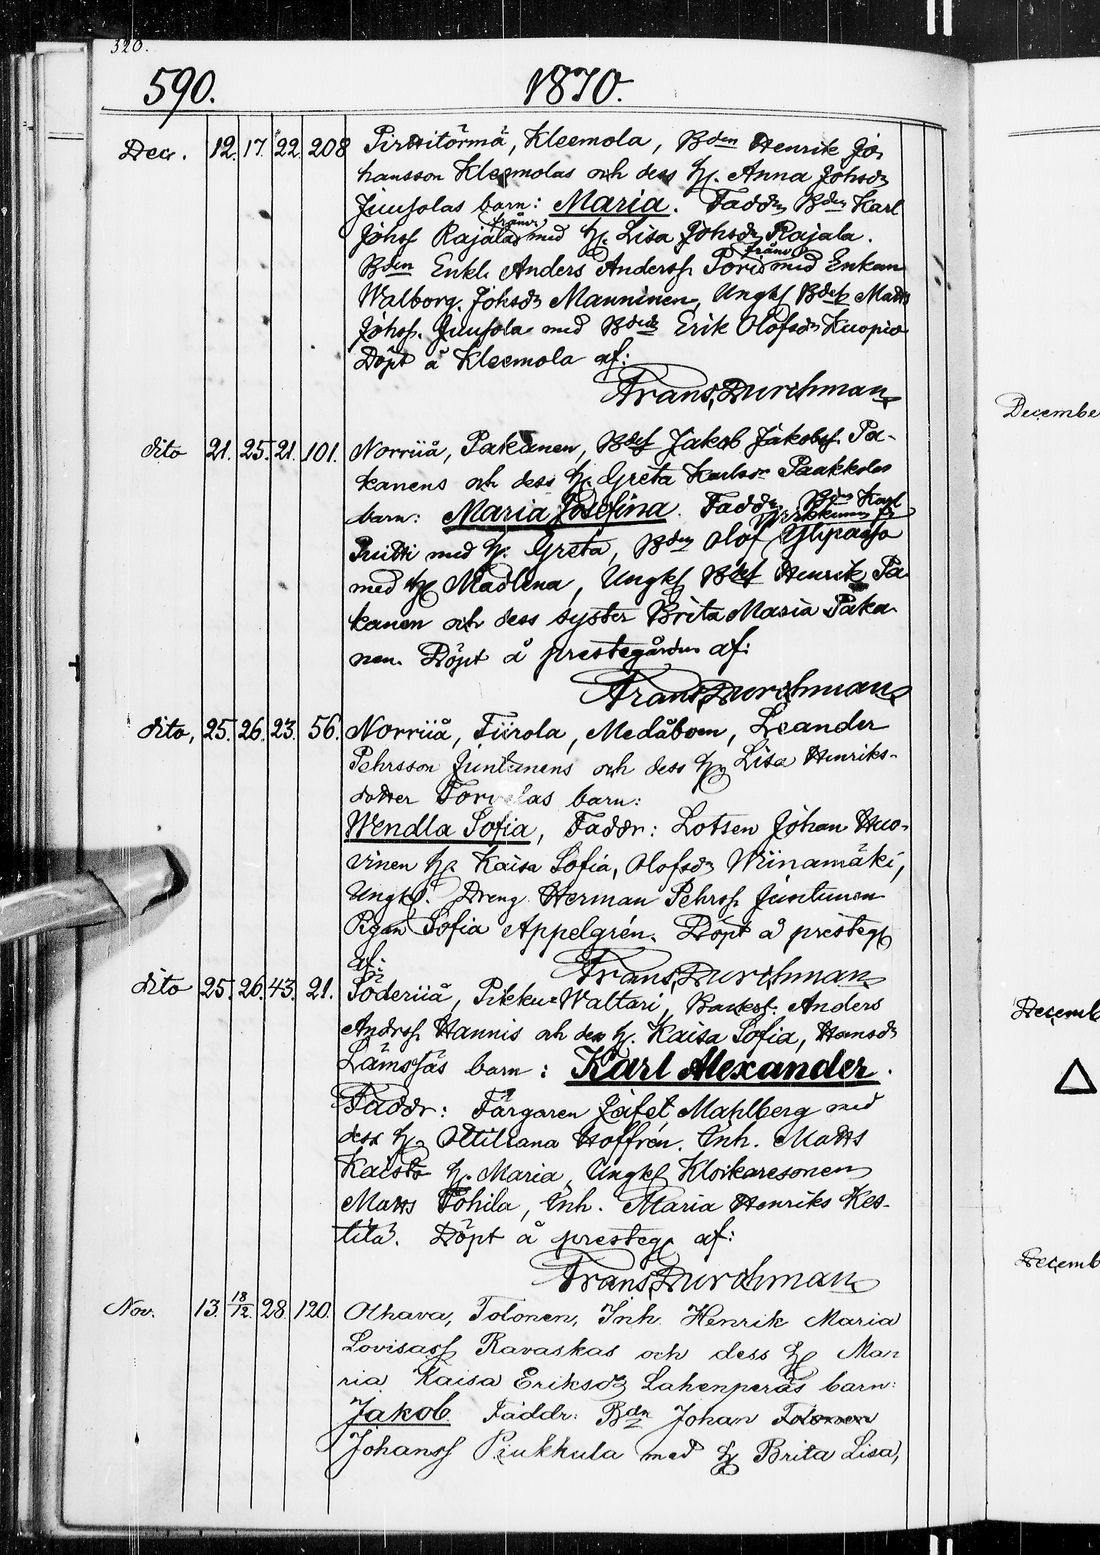 320.
590. 1870.
Decr. 12. 17. 22. 208 Pirttitörmä, Kleemola, Bden Henrik Jo-
hansson Kleemolas och dess h. Anna Johsdr
Juusolas barn: Maria. Faddr Bden Karl
Johss Rajala med h. Lisa Johsdr Rajala.
Bden Enkl. Anders Anderss med Enkan
Walborg Johsdr Manninen, Ungk Bdes Matts
Johss. Juusola med Bdes Erik Olofsdr Kuopio
Döpt å Kleemola af:
Frans Durchman
dito 21. 25. 21. 101. Norriiå, Pakanen, Bdes Jakob Jakobss. Pa-
kanens och dess h. Greta Karlsdr Paakkolas
barn: Maria Josefina. Faddr Bden Karl
med h. Greta, Bden Olof Ylipaaso
med h Madlena, Ungk Bdes Henrik Pa
kanen och dess syster Brita Maria Paka-
nen. Döpt å prestegården af:
Frans Durchman
dito, 25. 26. 23. 56. Norriiå, Tiirola, Medåboen, Leander
Pehrsson Juntunens och dess h Lisa Henriks-
dotter barn:
Wendla Sofia, Faddr: Lotsen Johan Huo-
vinen h. Kaisa Sofia, Olofsdr Wiinamäki,
Ungk. Dreng Herman Pehrss Juntunen
Pigan Sofia Appelgrén. Döpt å presteg
af: Frans Durchman
dito 25. 26. 43. 21. Söderiiå, Pikku-Waltari, Backst. Anders
Anderss Hannis och dess h. Kaisa Sofia, Hansdr
Lämssäs barn: Karl Alexander.
Faddr: Färgaren Jafet Mahlberg med
dess h. Ottiliana Hoffrén. Inh. Matts
Kaisto h. Maria, Ungk
Matts Tohila, Inh. Maria Henriks Kes-
tilä. Döpt å presteg af:
Frans Durchman
Nov. 13. 18/12. 28. 120. Olhava, Tolonen, Inh. Henrik Maria
Lovisass Ravaskas och dess h Ma-
ria Kaisa Eriksdr Lahenperäs barn:
Jakob Faddr: Bdn Johan Tolonen
Johanss Piukkula med h Brita Lisa,
Decembe
Decemb
Decemb